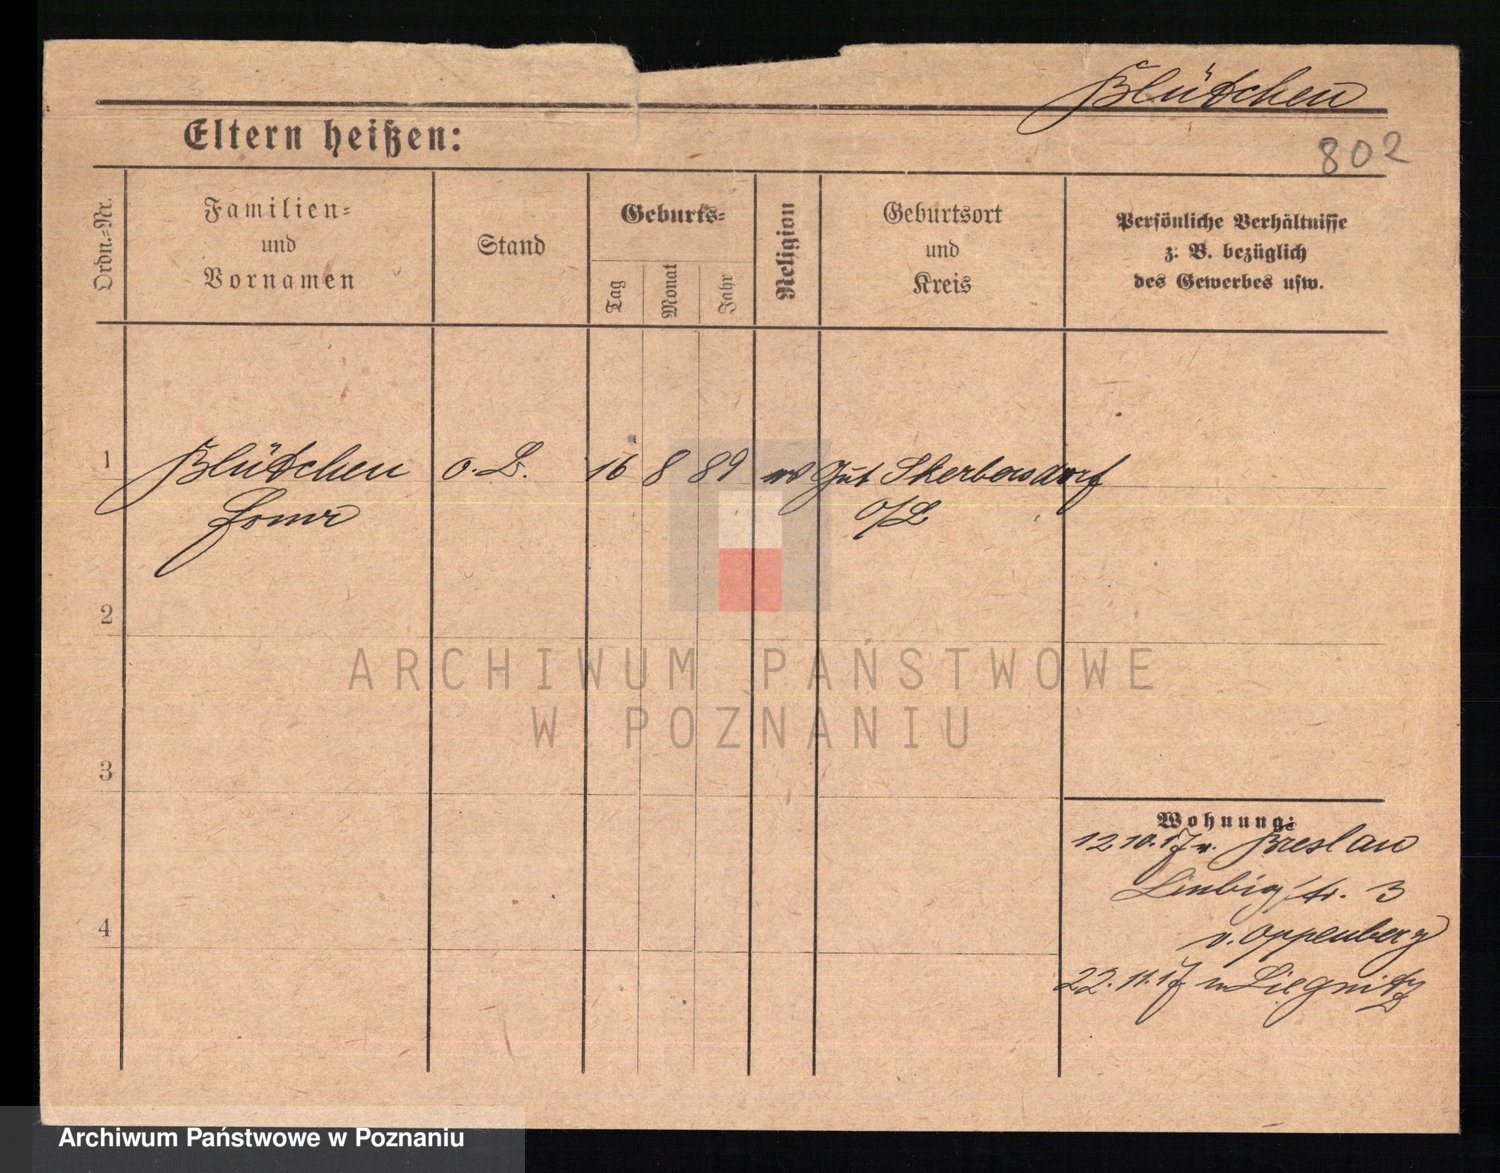 Blütchen
802
Eltern heißen:
Ordn.=Nr.
Familien=
und
Vornamen
Stand
Geburts=
Tag
Monat
Jahr
Religion
Geburtsort
und
Kreis
Persönliche Verhältnisse
z. B. bezüglich
des Gewerbes usw.
1
Blütchen o. B. 16 8 89 ev Gut Skerbersdorf
O/L
2
3
4
Wohnung:
12 10. 17 v. Breslau
str. 3
v. Oppenberg
22. 11. 17 n Liegnitz
ARCHIWUM PAŃSTWOWE
W POZNANIU
Archiwum Państwowe w Poznaniu